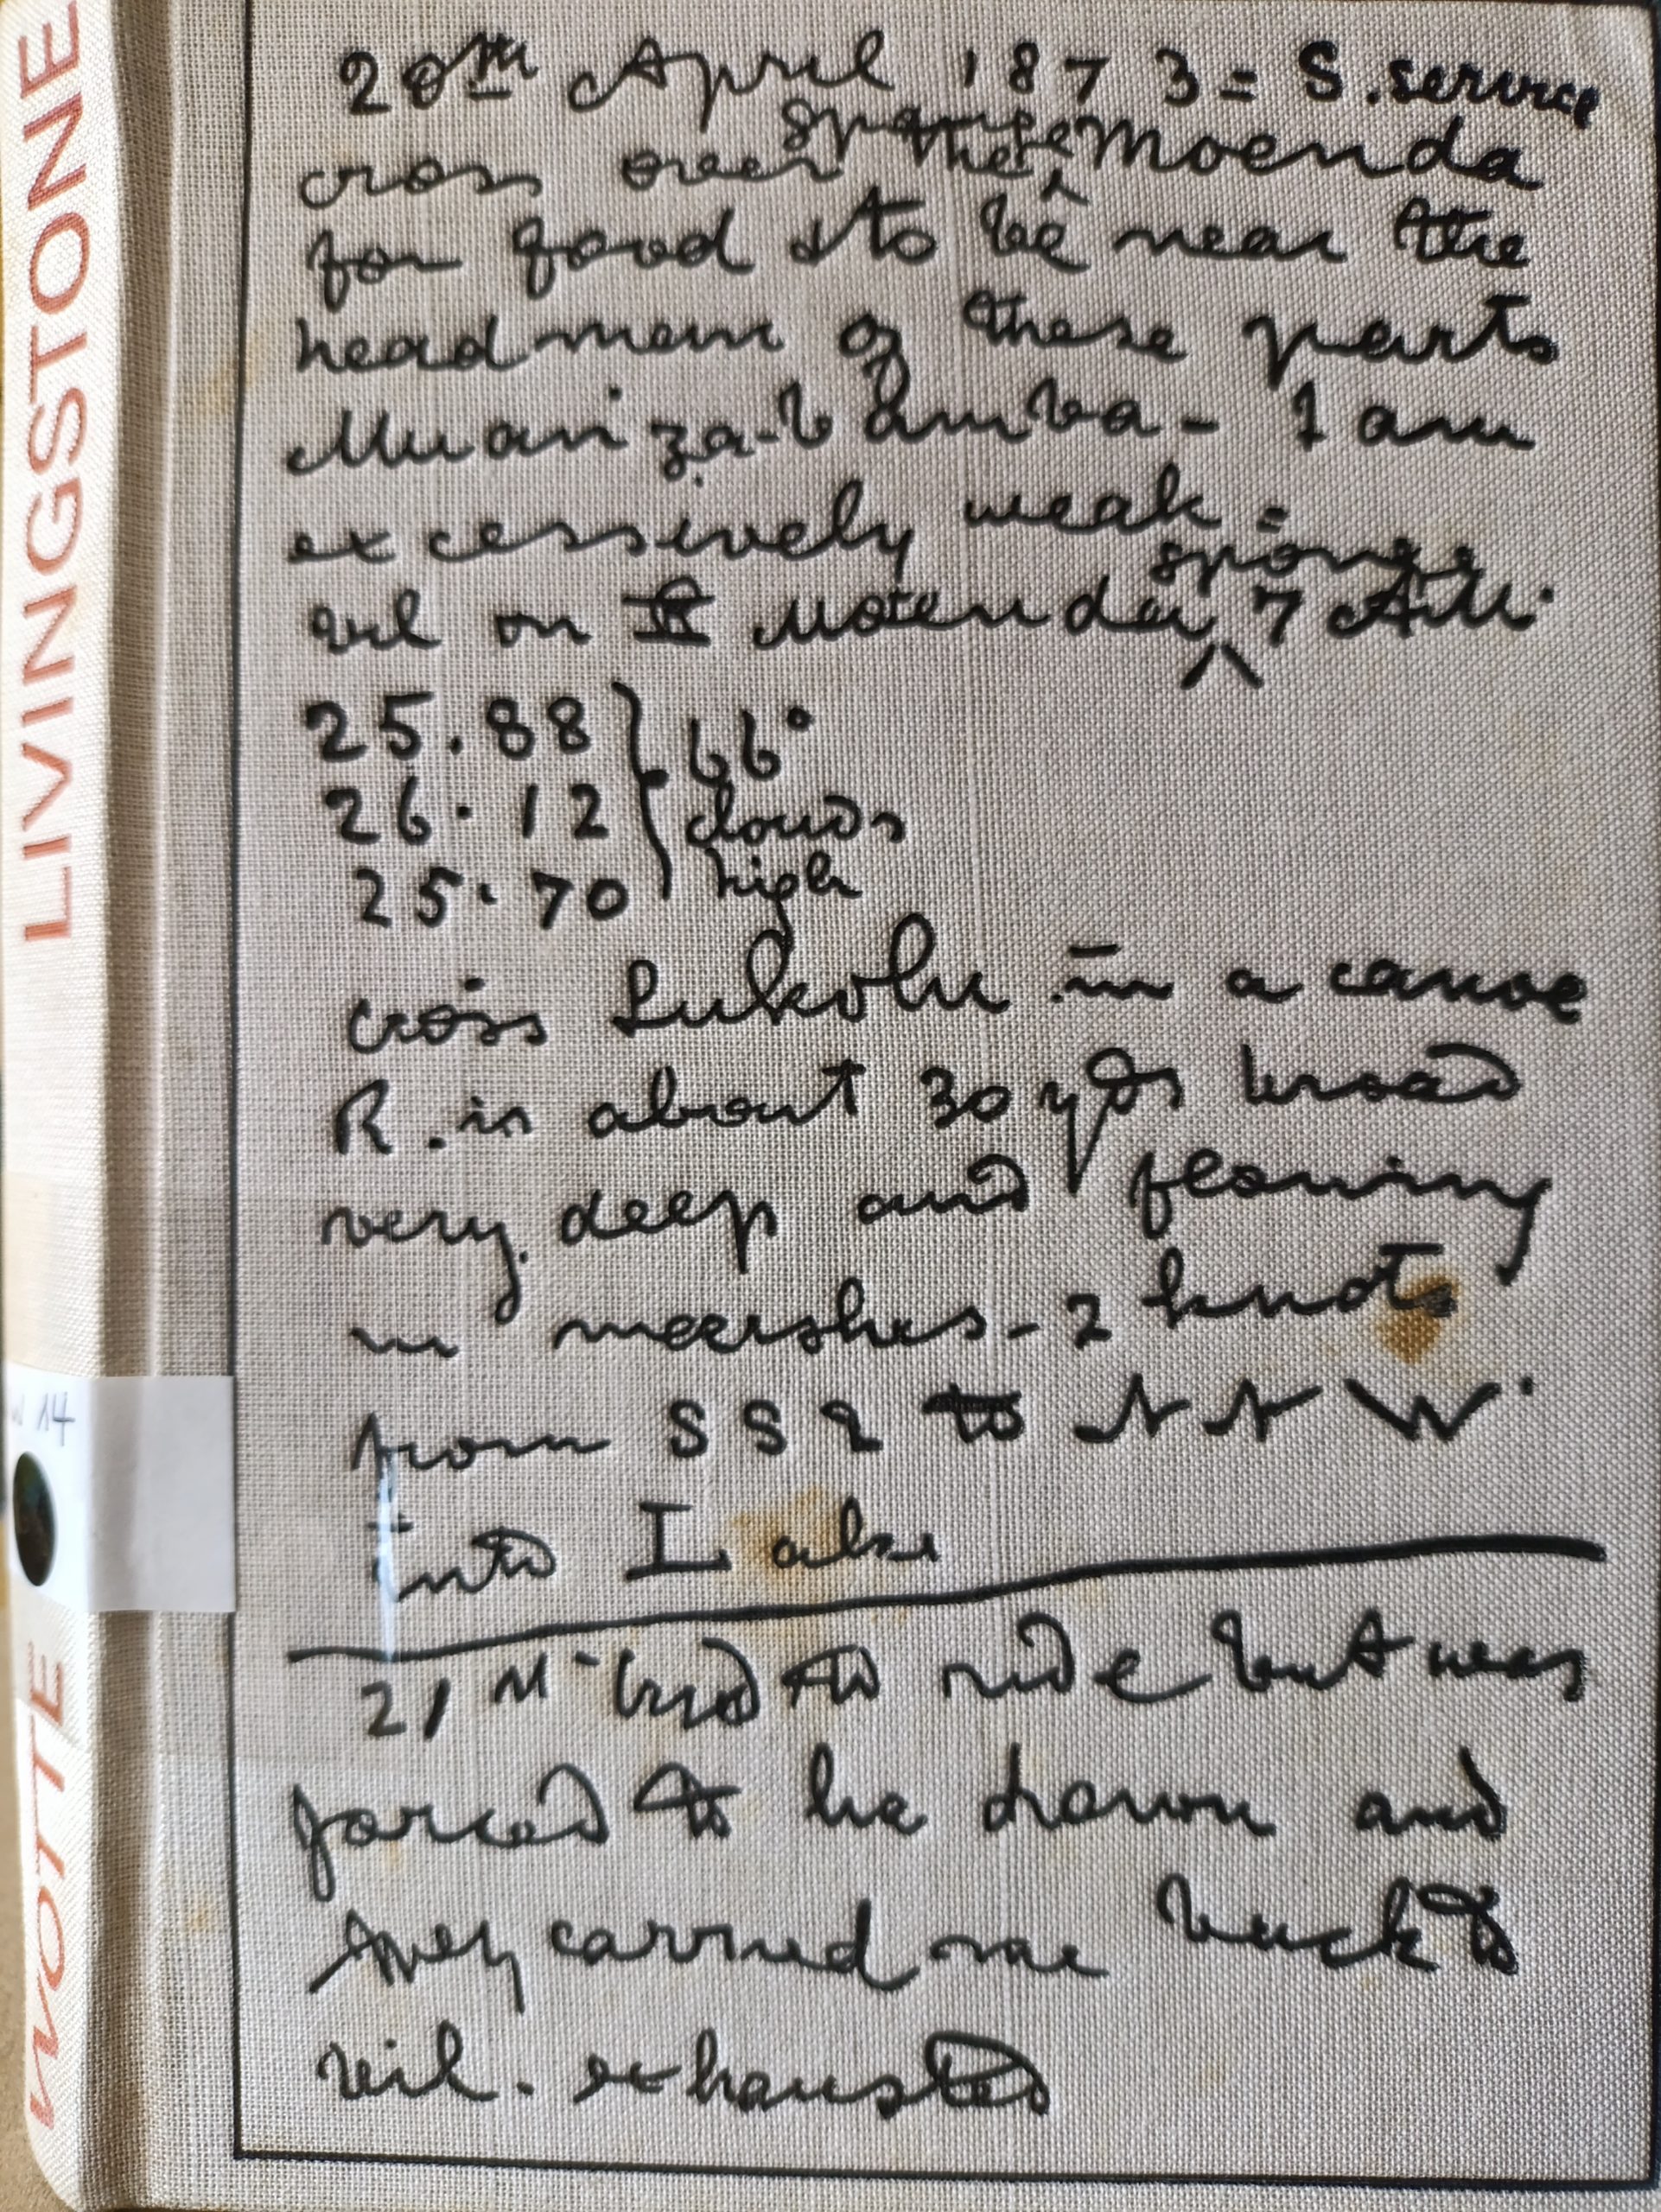 LIVINGSTONE
WOTTE
W 14
20th April 1873 = S. service
cross over the sponge Moenda
for food & to be near the
headman of these parts
Muanzabamba - I am
excessively weak =
vil on Moenda sponge 7 AM.
25.88 } 66°
26.12 } clouds
25.70 } high
cross Lukolu in a canoe
R. is about 30 yds broad
very deep and flowing
in marshes - 2 knots
from SSE to NNW.
into Lake
21st tried to ride but was
forced to lie down and
they carried me back to
vil. exhausted